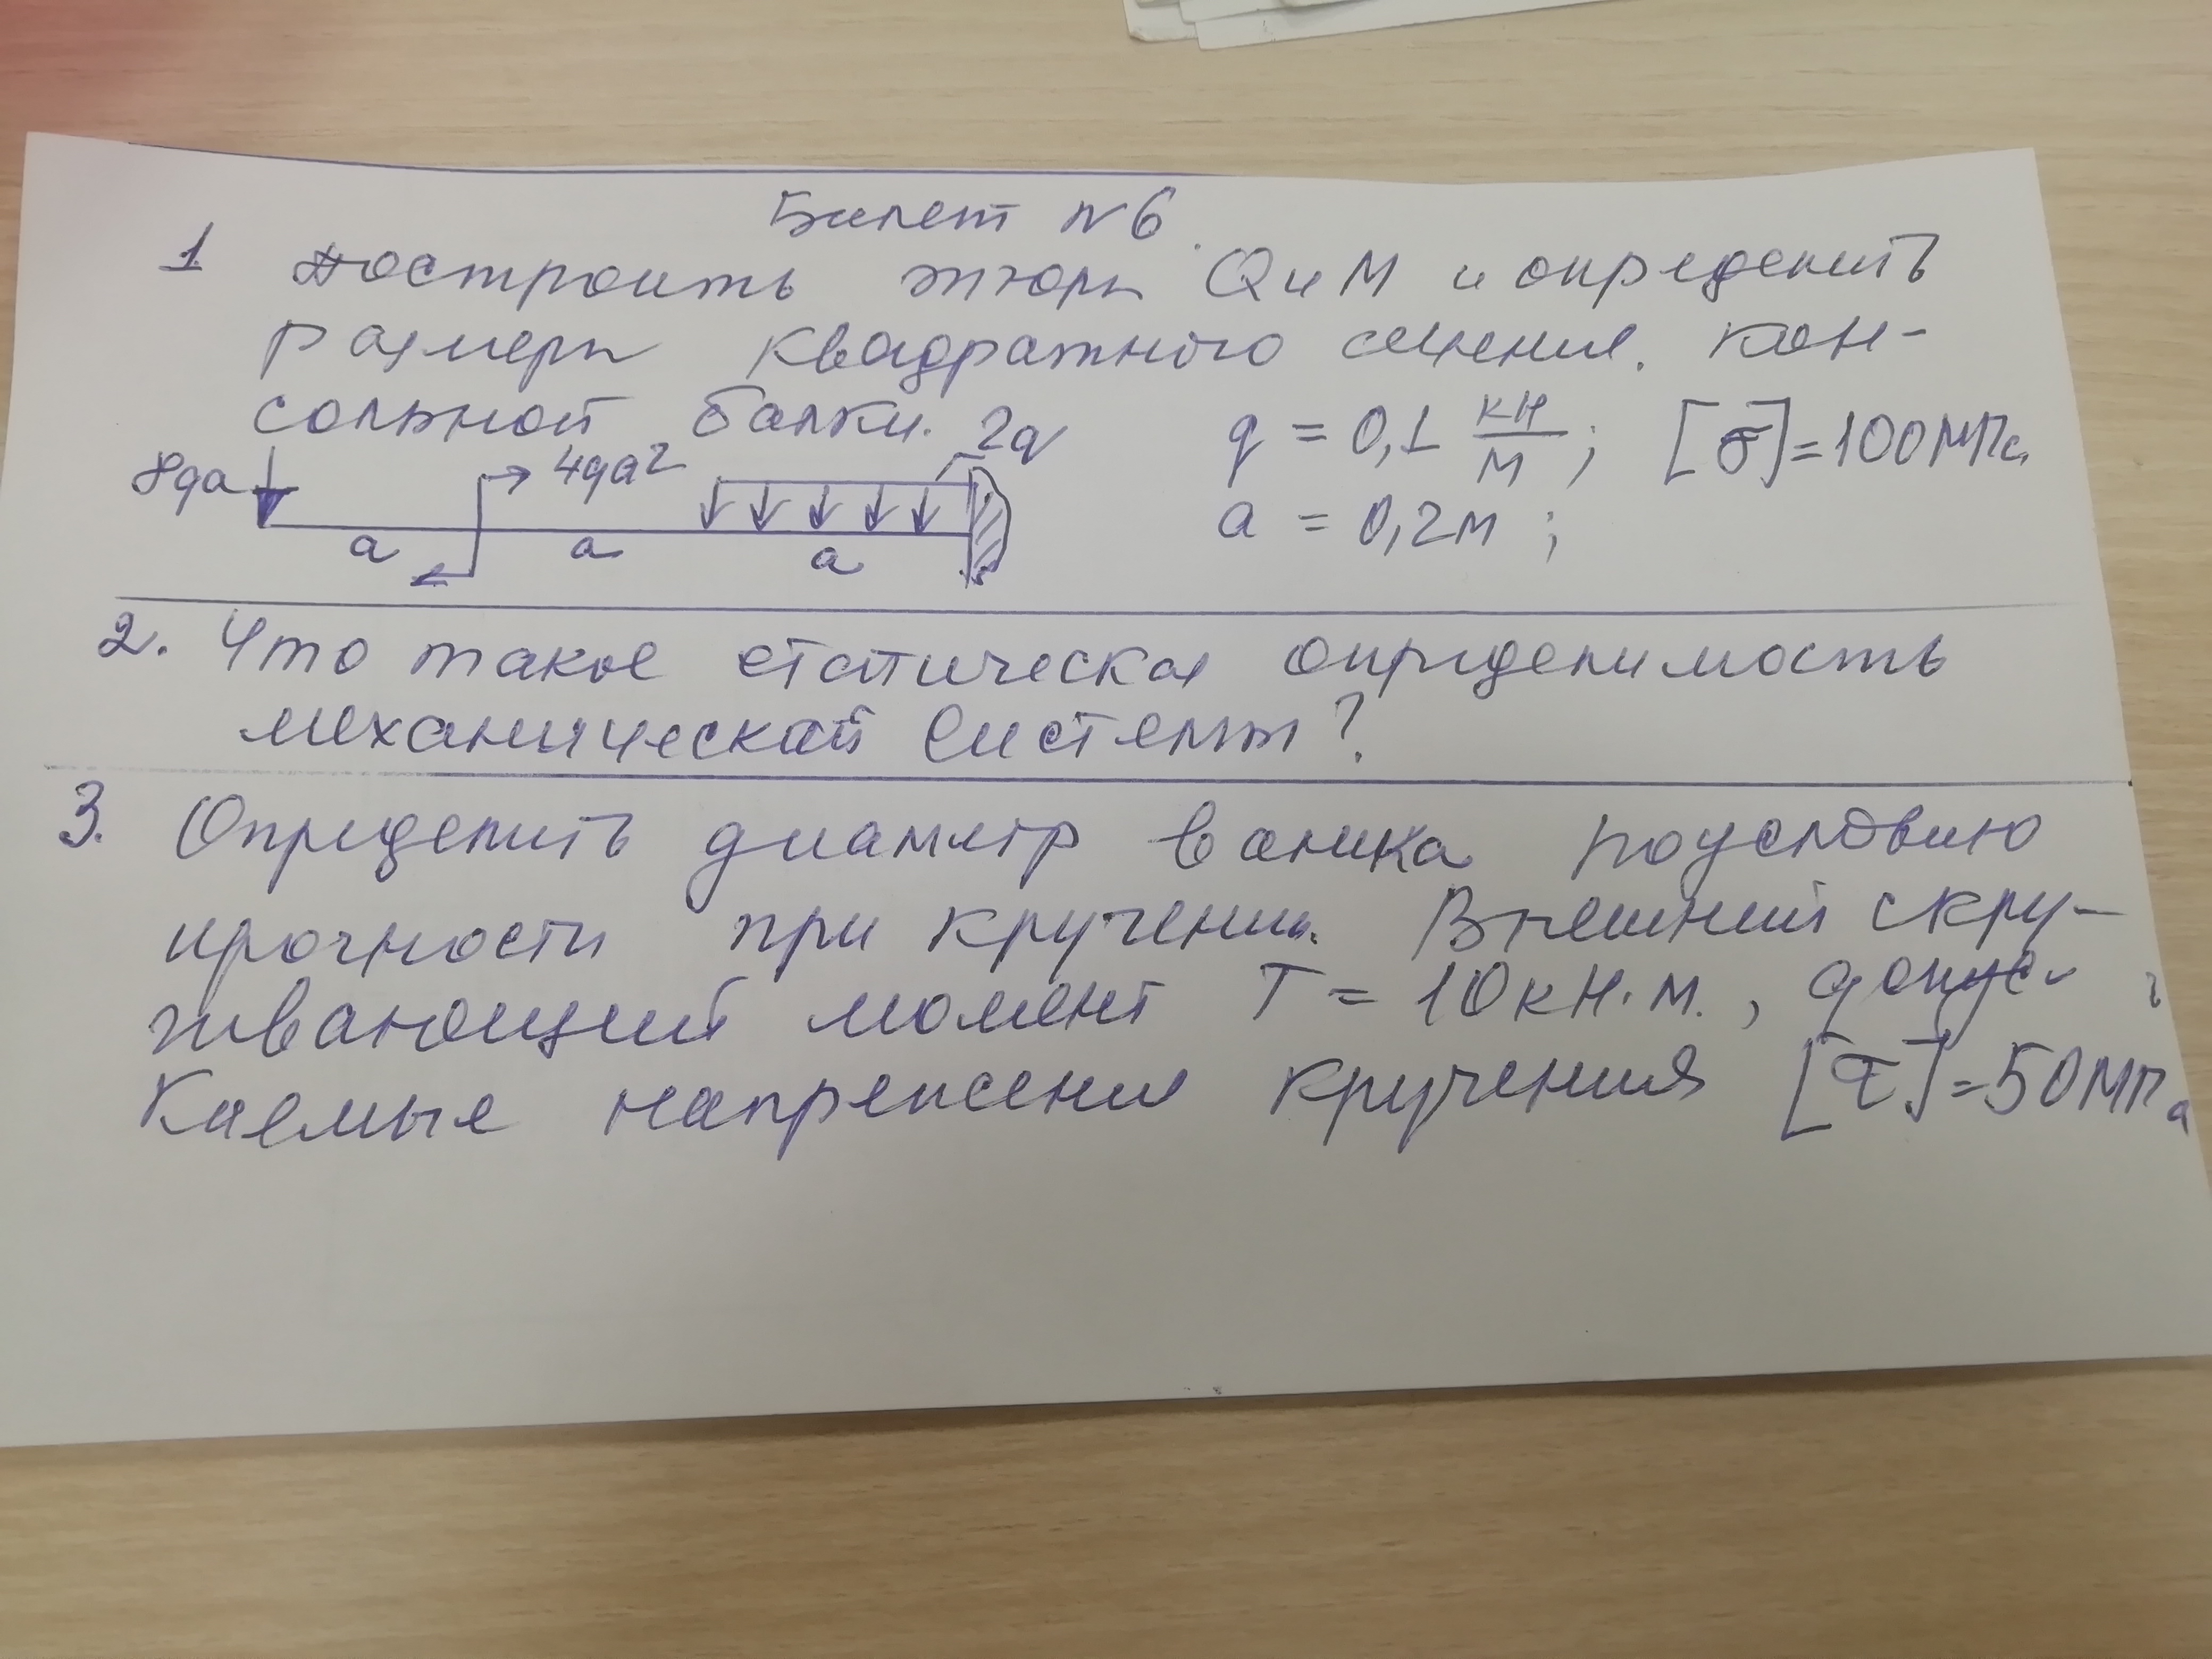 Билет №6.
1 Построить эпюры Q и M и определить
размеры квадратного сечения. кон-
сольной балки.
q = 0,1 кН/м ; [σ] = 100 МПа
8qa 4qa² 2q
a = 0,2 м ;
a a a
2. Что такое статическая определимость
механической системы?
3. Определить диаметр валика по условию
прочности при кручении. Внешний скру-
чивающий момент T = 10 кН·м. , допус-
каемые напряжения кручения [τ] = 50 МПа